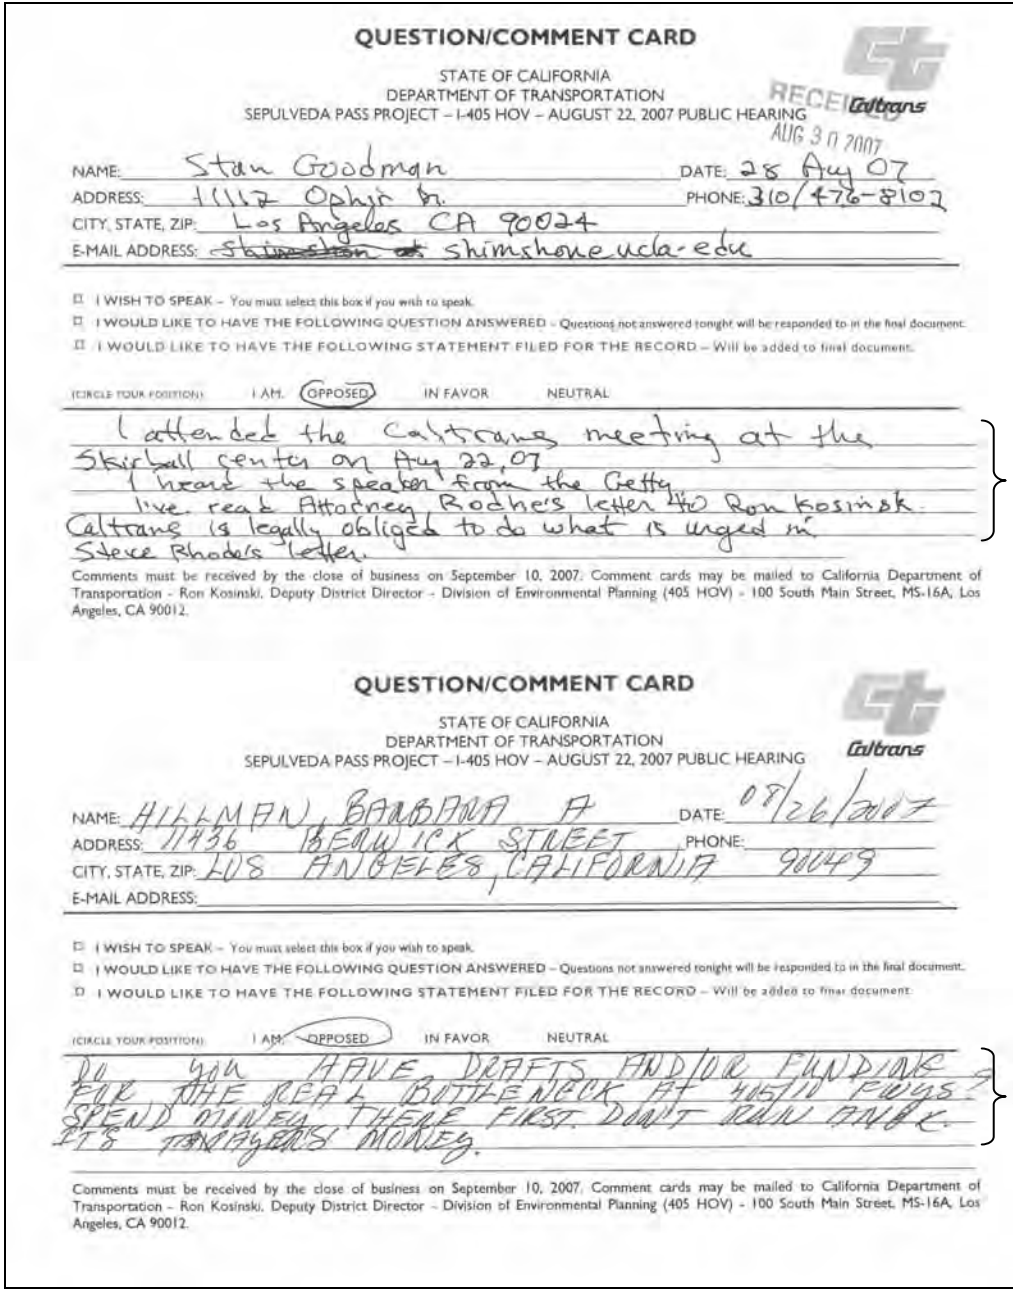 QUESTION/COMMENT CARD
STATE OF CALIFORNIA
DEPARTMENT OF TRANSPORTATION
SEPULVEDA PASS PROJECT – I-405 HOV – AUGUST 22, 2007 PUBLIC HEARING
RECEIVED
Caltrans
AUG 30 2007
NAME: Stan Goodman DATE: 28 Aug 07
ADDRESS: 11112 Ophir Dr. PHONE: 310/476-8102
CITY, STATE, ZIP: Los Angeles CA 90024
E-MAIL ADDRESS: shimshone ucla-edu
I WISH TO SPEAK – You must select this box if you wish to speak.
I WOULD LIKE TO HAVE THE FOLLOWING QUESTION ANSWERED – Questions not answered tonight will be responded to in the final document.
I WOULD LIKE TO HAVE THE FOLLOWING STATEMENT FILED FOR THE RECORD – Will be added to final document.
(CIRCLE YOUR POSITION) I AM: OPPOSED IN FAVOR NEUTRAL
I attended the Caltrans meeting at the
Skirball center on Aug 22, 07
I heard the speaker from the Getty
I've read Attorney letter to Ron Kosinsk.
Caltrans is legally obliged to do what is urged in
Steve Rhode's letter.
Comments must be received by the close of business on September 10, 2007. Comment cards may be mailed to California Department of
Transportation - Ron Kosinski, Deputy District Director - Division of Environmental Planning (405 HOV) - 100 South Main Street, MS-16A, Los
Angeles, CA 90012.
QUESTION/COMMENT CARD
STATE OF CALIFORNIA
DEPARTMENT OF TRANSPORTATION
SEPULVEDA PASS PROJECT – I-405 HOV – AUGUST 22, 2007 PUBLIC HEARING
Caltrans
NAME: HILLMAN, BARBARA A DATE: 08/26/2007
ADDRESS: 11436 BERWICK STREET PHONE:
CITY, STATE, ZIP: LOS ANGELES, CALIFORNIA 90049
E-MAIL ADDRESS:
I WISH TO SPEAK – You must select this box if you wish to speak.
I WOULD LIKE TO HAVE THE FOLLOWING QUESTION ANSWERED – Questions not answered tonight will be responded to in the final document.
I WOULD LIKE TO HAVE THE FOLLOWING STATEMENT FILED FOR THE RECORD – Will be added to final document.
(CIRCLE YOUR POSITION) I AM: OPPOSED IN FAVOR NEUTRAL
DO YOU HAVE DRAFTS AND/OR FUNDING
FOR THE REAL BOTTLENECK AT 405/10 FWYS?
SPEND MONEY THERE FIRST. DON'T RUN
ITS TAXPAYERS' MONEY.
Comments must be received by the close of business on September 10, 2007. Comment cards may be mailed to California Department of
Transportation - Ron Kosinski, Deputy District Director - Division of Environmental Planning (405 HOV) - 100 South Main Street, MS-16A, Los
Angeles, CA 90012.